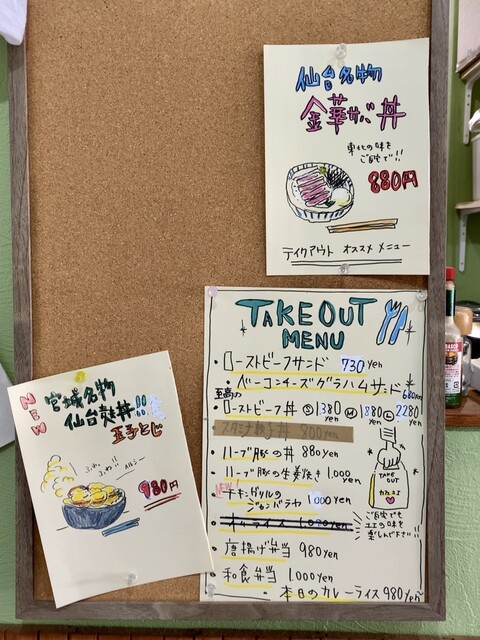 仙台名物
金華サバ丼
東北の味を
ご自宅で!!
880円
テイクアウト オススメ メニュー
TAKEOUT
MENU
・ローストビーフサンド 730yen
・ベーコンチーズグラハムサンド 680yen
至高の
・ローストビーフ丼 S 1380 M 1880 L 2280
800yen
・ハーブ豚の丼 880yen
・ハーブ豚の生姜焼き 1.000yen
NEW
・チキングリルの
ジャンバラヤ 1000yen
・オムライス 1.020yen
・唐揚げ弁当 980yen
・和食弁当 1.000yen
・本日のカレーライス 980yen
TAKE
OUT
ご自宅でも
ユエの味を
楽しんで下さい!!
NEW
宮城名物
仙台麩丼!!
玉子とじ
ふわふわ!!
980円